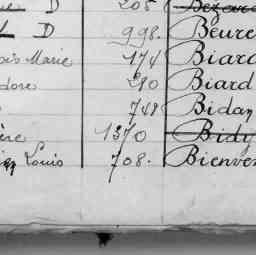 D 208 Bézard
D 998. Beure
ois Marie 174 Biard
dore 290 Biard
748 Bidan
ère 1370 Bidy
Louis 708. Bienve